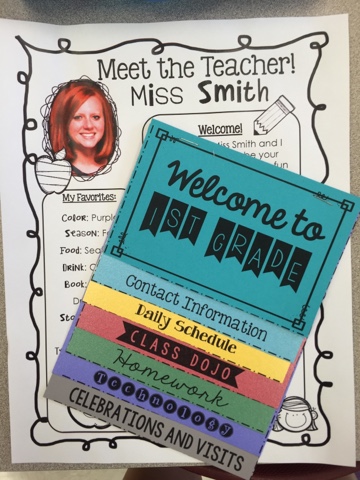 Meet the Teacher!
Miss Smith
Welcome!
Miss Smith and I
be your
fun
My Favorites:
Color: Purple
Season:
Food:
Drink:
Book:
Welcome to
1ST GRADE
Contact Information
Daily Schedule
CLASS DOJO
Homework
Technology
CELEBRATIONS AND VISITS